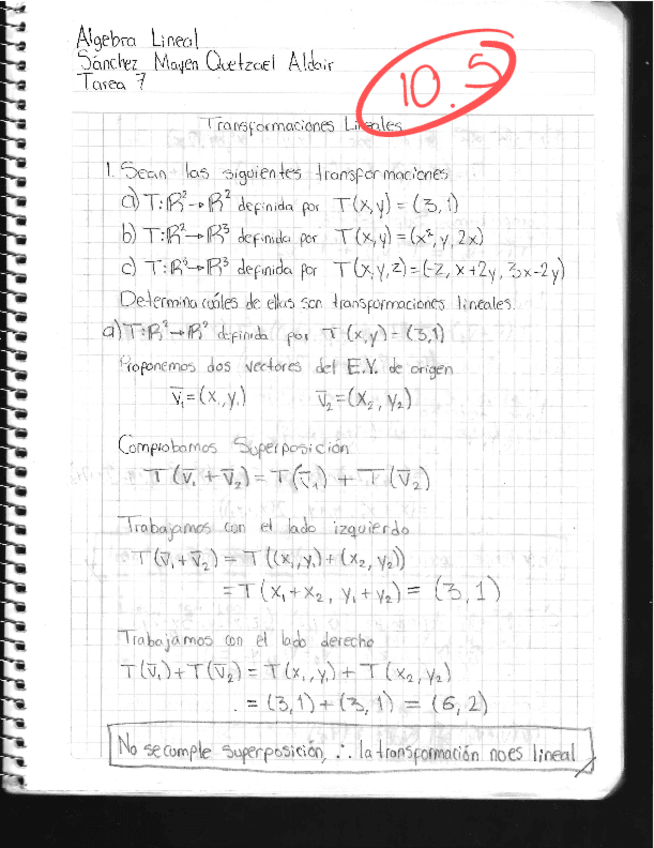 Algebra Lineal
Sánchez Mayen Quetzael Aldair
Tarea 7
10.5
Transformaciones Lineales
1. Sean las siguientes transformaciones
a) T:ℝ²→ℝ² definida por T(x,y) = (3,1)
b) T:ℝ²→ℝ³ definida por T(x,y) = (x², y, 2x)
c) T:ℝ³→ℝ³ definida por T(x,y,z) = (-z, x+2y, 3x-2y)
Determina cuáles de ellas son transformaciones lineales.
a) T:ℝ²→ℝ² definida por T(x,y) = (3,1)
Proponemos dos vectores del E.V. de origen
v̅₁=(x₁,y₁) v̅₂=(x₂,y₂)
Comprobamos Superposición
T(v̅₁+v̅₂) = T(v̅₁) + T(v̅₂)
Trabajamos con el lado izquierdo
T(v̅₁+v̅₂) = T((x₁,y₁)+(x₂,y₂))
= T(x₁+x₂, y₁+y₂) = (3,1)
Trabajamos con el lado derecho
T(v̅₁)+T(v̅₂) = T(x₁,y₁)+T(x₂,y₂)
= (3,1)+(3,1) = (6,2)
No se cumple superposición, ∴ la transformación no es lineal